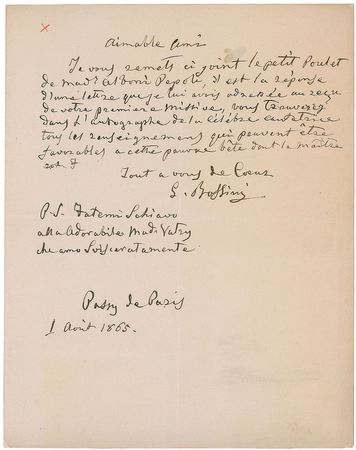 Aimable Ami
Je vous remets ci joint le petit Poulet
de Mad.e Alboni Pepoli, il est la réponse
d'une lettre que je lui avois adressée au reçu
de votre premiere Missive, vous trouverez
dans l'autographe de la célèbre cantatrice
tous les renseignements qui peuvent être
favorables a cette pauvre bête dont le maître
est
Tout a vous de Coeur
G. Rossini
P.S. Fatemi Schiavo
alla Adorabile Mad. Vatry
che amo Svisceratamente
Passy de Paris
1 Août 1865.